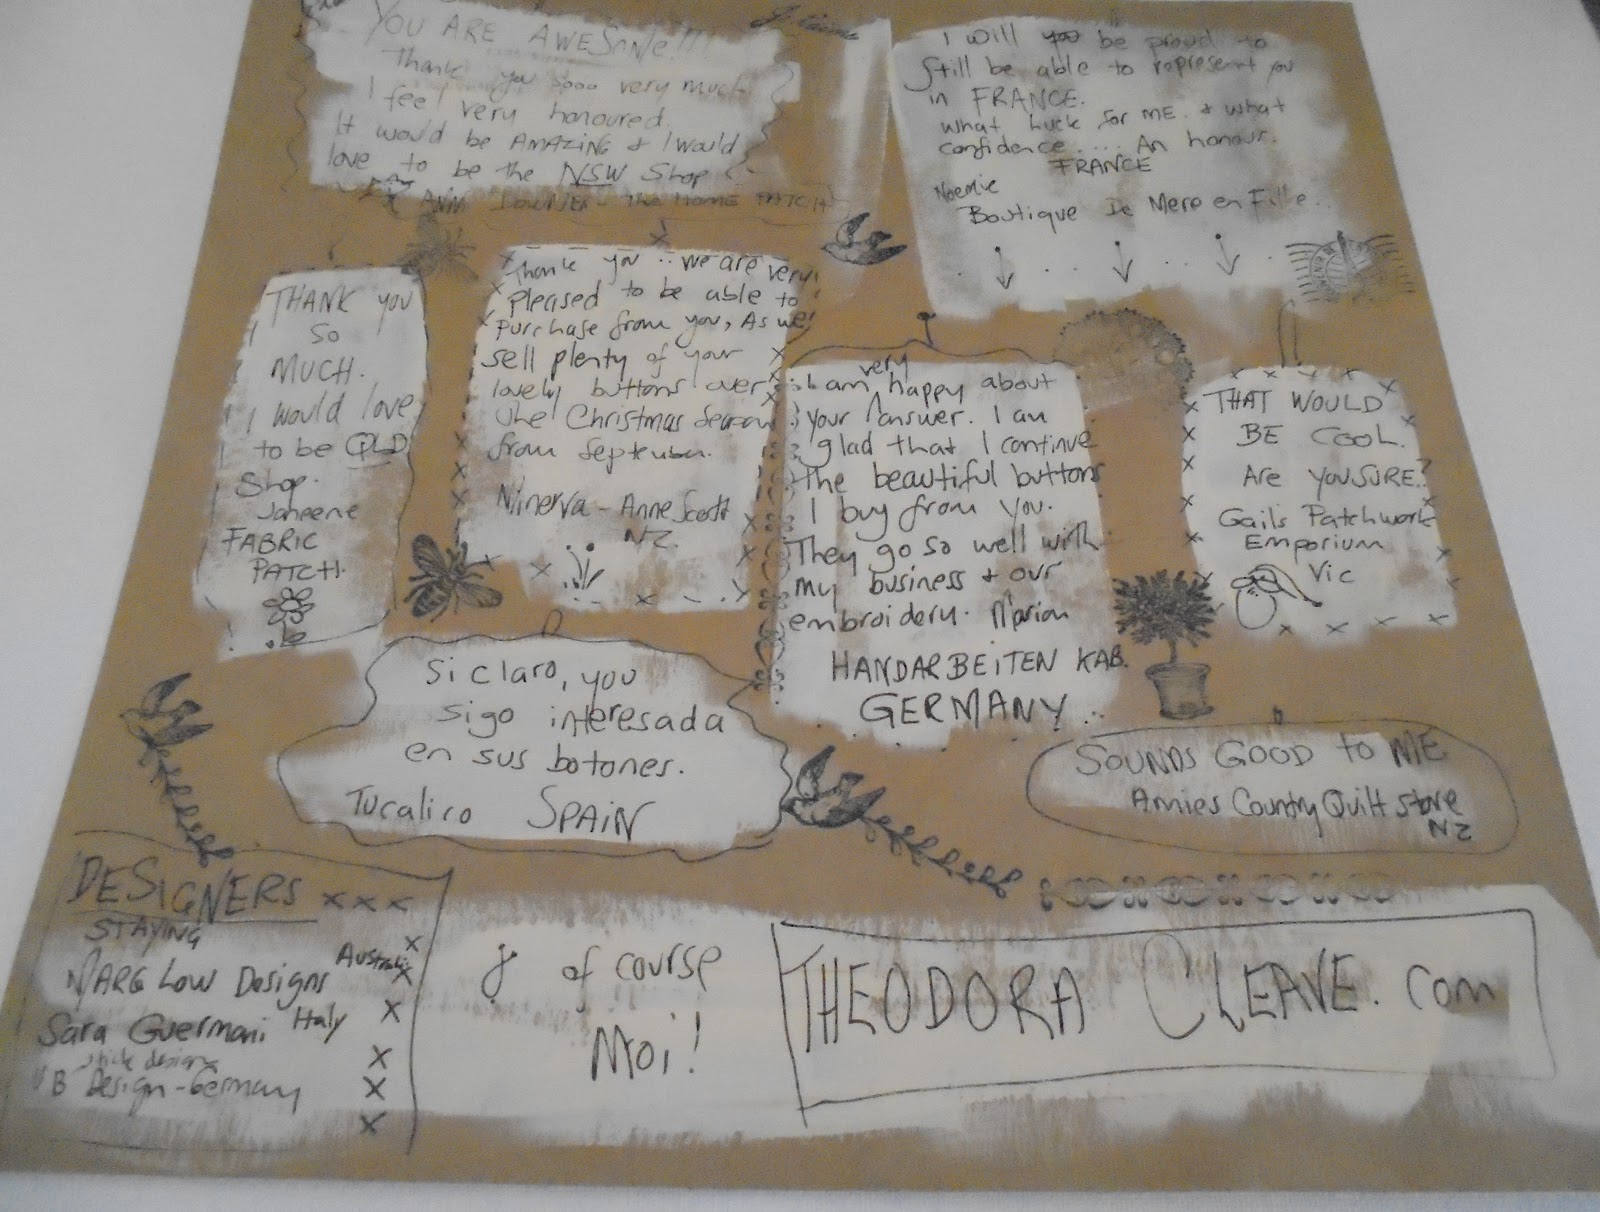 YOU ARE AWESOME!!!
Thank you sooo very much
I feel very honoured.
It would be AMAZING & I would
love to be the NSW Shop
ANN DOWNES - The HOME PATCH
I will be proud to
Still be able to represent you
in FRANCE.
What Luck for ME. & what
confidence .... An honour.
FRANCE
Noemie
Boutique De Mere en Fille..
THANK you
SO
MUCH.
I would love
to be QLD
Shop.
Janeene
FABRIC
PATCH.
Thank you .. we are very
pleased to be able to
purchase from you, As we
sell plenty of your
lovely buttons over
the Christmas Season
from September.
Minerva - Anne Scott
NZ.
very
I am happy about
your answer. I am
glad that I continue
The beautiful buttons
I buy from you.
They go so well with
my business & our
embroidery. Marion
HANDARBEITEN KAB.
GERMANY...
THAT WOULD
BE COOL.
Are YOU SURE?
Gails Patchwork
Emporium
Vic
Si claro, you
sigo interesada
en sus botones.
Tucalico SPAIN
SOUNDS GOOD to ME
Annies Country Quilt Store
NZ
DESIGNERS x x x
STAYING
MARG LOW Designs Australia x
x
Sara Guermani Italy x
x
B Design - Germany x
x
& of course
Moi!
THEODORA CLEAVE.com